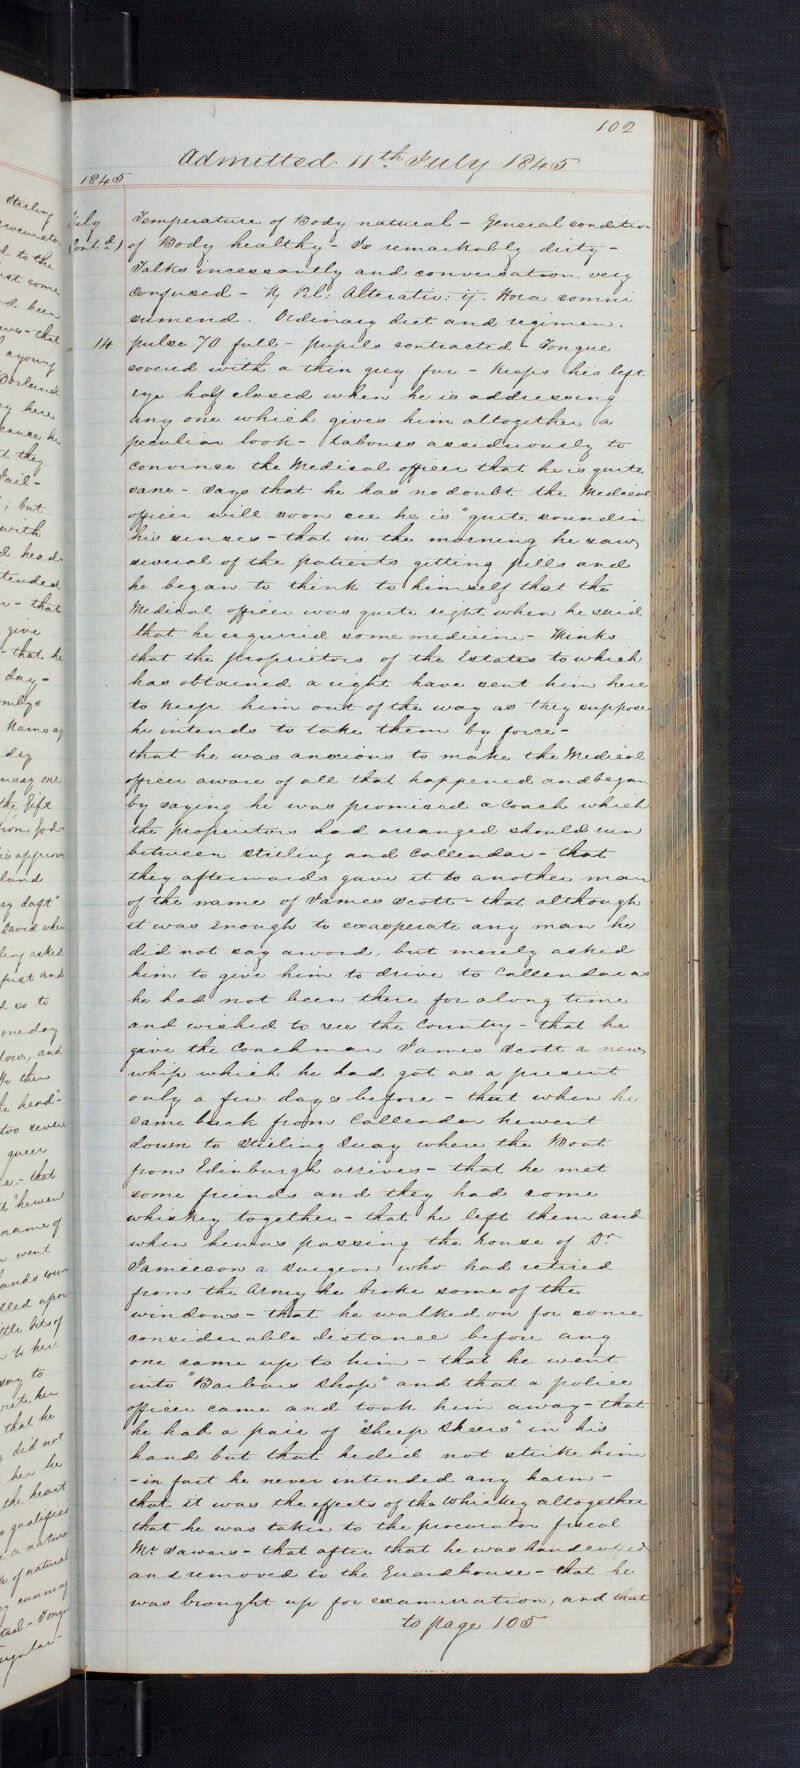 102
Admitted 11th July 1845
1845
July Temperature of Body natural - General condition
Contd) of Body healthy - Is remarkably dirty -
Talks incessantly and conversation very
confused - Ry Pil: Alterativ: ij. Hora somni
sumend. Ordinary diet and regimen.
14 pulse 70 full - pupils contracted - Tongue
covered with a thin grey fur - Keeps his left
eye half closed when he is addressing
any one which gives him altogether a
peculiar look - Labours assiduously to
convince the Medical officer that he is quite
sane - says that he has no doubt the Medical
officer will soon see he is "quite sound in
his senses - that in the morning he saw
several of the patients getting pills and
he began to think to himself that the
Medical officer was quite right when he said
that he required some medicine - Thinks
that the proprietors of the Estates to which
has obtained a right have sent him here
to keep him out of the way as they suppose
he intends to take them by force -
that he was anxious to make the Medical
officer aware of all that happened and began
by saying he was promised a Coach which
the proprietors had arranged should run
between Stirling and Callendar - that
they afterwards gave it to another man
of the name of James Scott - that although
it was enough to exasperate any man he
did not say a word, but merely asked
him to give him to drive to Callendar as
he had not been there for a long time
and wished to see the Country - that he
gave the Coachman James Scott a new
whip which he had got as a present
only a few days before - that when he
came back from Callendar he went
down to Stirling Quay where the Boat
from Edinburgh arrives - that he met
some friends and they had some
whiskey together - that he left them and
when he was passing the house of Dr
Jamieson a surgeon who had retired
from the Army he broke some of the
windows - that he walked on for some
considerable distance before any
one came up to him - that he went
into "Barbars Shop" and that a police
officer came and took him away - that
he had a pair of "Sheep Sheers" in his
hand but that he did not strike him
- in fact he never intended any harm -
that it was the effects of the Whiskey altogether
that he was taken to the procurator fiscal
Mr Sawers - that after that he was handcuffed
and removed to the Guardhouse - that he
was brought up for examination, and that
to page 105